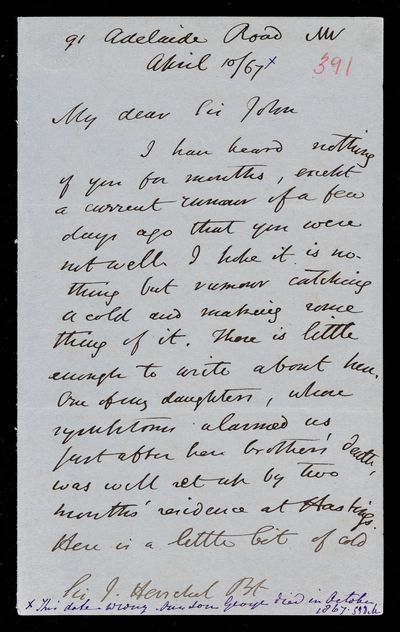 91 Adelaide Road NW
April 10/67 x
391
My dear Sir John
I have heard nothing
of you for months, except
a current rumour of a few
days ago that you were
not well. I hope it is no-
thing but rumour catching
a cold and making some
thing of it. There is little
enough to write about here.
One of my daughters, whose
symptoms alarmed us
just after her brother's death,
was well set up by two
months' residence at Hastings.
Here is a little bit of old
Sir J. Herschel Bt
x This date wrong. Our son George died in October
1867. S.E.De M.